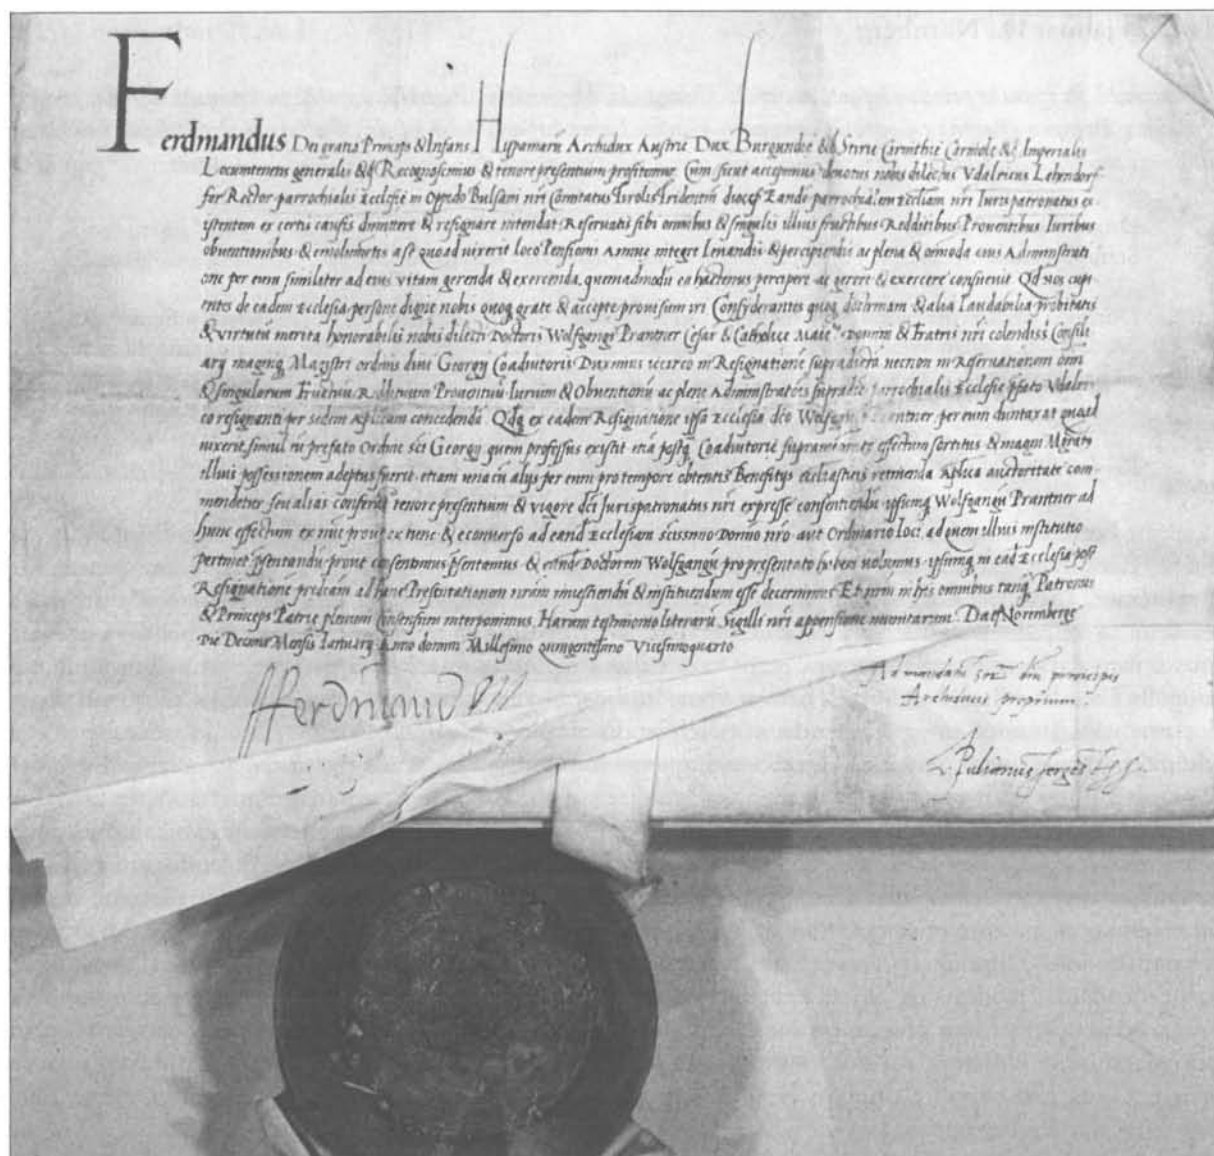 Ferdinandus Dei gratia Princeps & Infans Hispaniarū Archidux Austrie Dux Burgundie &ć Stirie Carinthie Carniole &ć Imperialis
Locumtenens generalis &ć Recognoscimus & tenore presentium profitemur. Cum sicut accepimus deuotus nobis dilectus Vdalricus Lehendorf
fer Rector parrochialis Ecclesie in Oppido Bulsani nr̄i Comitatus Tirolis Tridentin̄ dioces̄ Eandē parrochialem Eccl̄iam nr̄i Iuris patronatus ex-
istentem ex certis causis dimittere & resignare intendat Reseruatis sibi omnibus & singulis illius fructibus Redditibus Prouentibus Iuribus
obuentionibus & emolimētis ast quoad vixerit loco Pensionis Annue integre leuandis & percipiendis ac plena & om̄oda eius Administrati
one per eum similiter ad eius vitam gerenda & exercenda, quemadmodū ea hactenus percipere ac gerere & exercere consueuit. Qd̄ nos cupi-
entes de eadem Ecclesia persone digne nobis quoq grate & accepte prouisum iri Consyderantes quoq doctrinam & alia laudabilia probitatis
& virtutū merita honorabilis nobis dilecti Doctoris Wolfgangi Prantner Cesar̄ & Catholice Maiēᵗⁱˢ Domini & Fratris nr̄i colendiss̄ Consili
arij magniq Magistri ordinis diui Georgij Coadiutoris Duximus iccirco in Resignationē supradictā necnon in Reseruationem om̄i
& singulorum Fructuū Reddituum Prouentuū Iurium & Obuentionū ac plene Administratōis supradictē parrochialis Ecclesie p̄fato Vdalri-
co resignanti per sedem Ap̄licam concedendā Qd̄q ex eadem Resignatione ipsa Ecclesia dc̄o Wolfgango Prantner per eum duntaxat quoad
vixerit, simul cū prefato Ordine sc̄i Georgij quem professus existit etiā postq̄ Coadiutorie supranomīate effectum sortitus & magni Mg̅ratꝰ
illius possessionem adeptus fuerit etiam vnacū alijs per eum pro tempore obtentis Beneficijs ecclesiasticis retinenda Ap̄lica auctoritate com-
mendetur seu alias conferat̄ tenore presentium & vigore dc̄i Juris patronatus nr̄i expresse consentiendū ipsumq̄ Wolfgangū Prantner ad
hunc effectum ex nūc prout ex tunc & econuerso ad eand̄ Ecclesiam sc̄issimo Domino nr̄o aut Ordinario loci, ad quem illius institutio
pertinet p̄sentandū prout consentimus p̄sentamus & eūnd̄ Doctorem Wolfgangū pro presentato haberi volumus ipsumq̄ in ead̄ Ecclesia post
Resignationē predictam ad hanc Presentationem nr̄am inuestiendū & instituendum esse decernimus Et nos in his omnibus tanq̄ Patronus
& Princeps Patrie plenum consensum interponimus. Harum testimonio literarū Sigilli nr̄i appensione munitarum. Dat̄ Noremberge
Die Decimo Mensis Ianuarij Anno domini Millesimo quingentesimo Vicesimoquarto
Ferdinandꝰ
Ad mandatū Ser̄ᵐⁱ dn̄i principis
Archiducis proprium